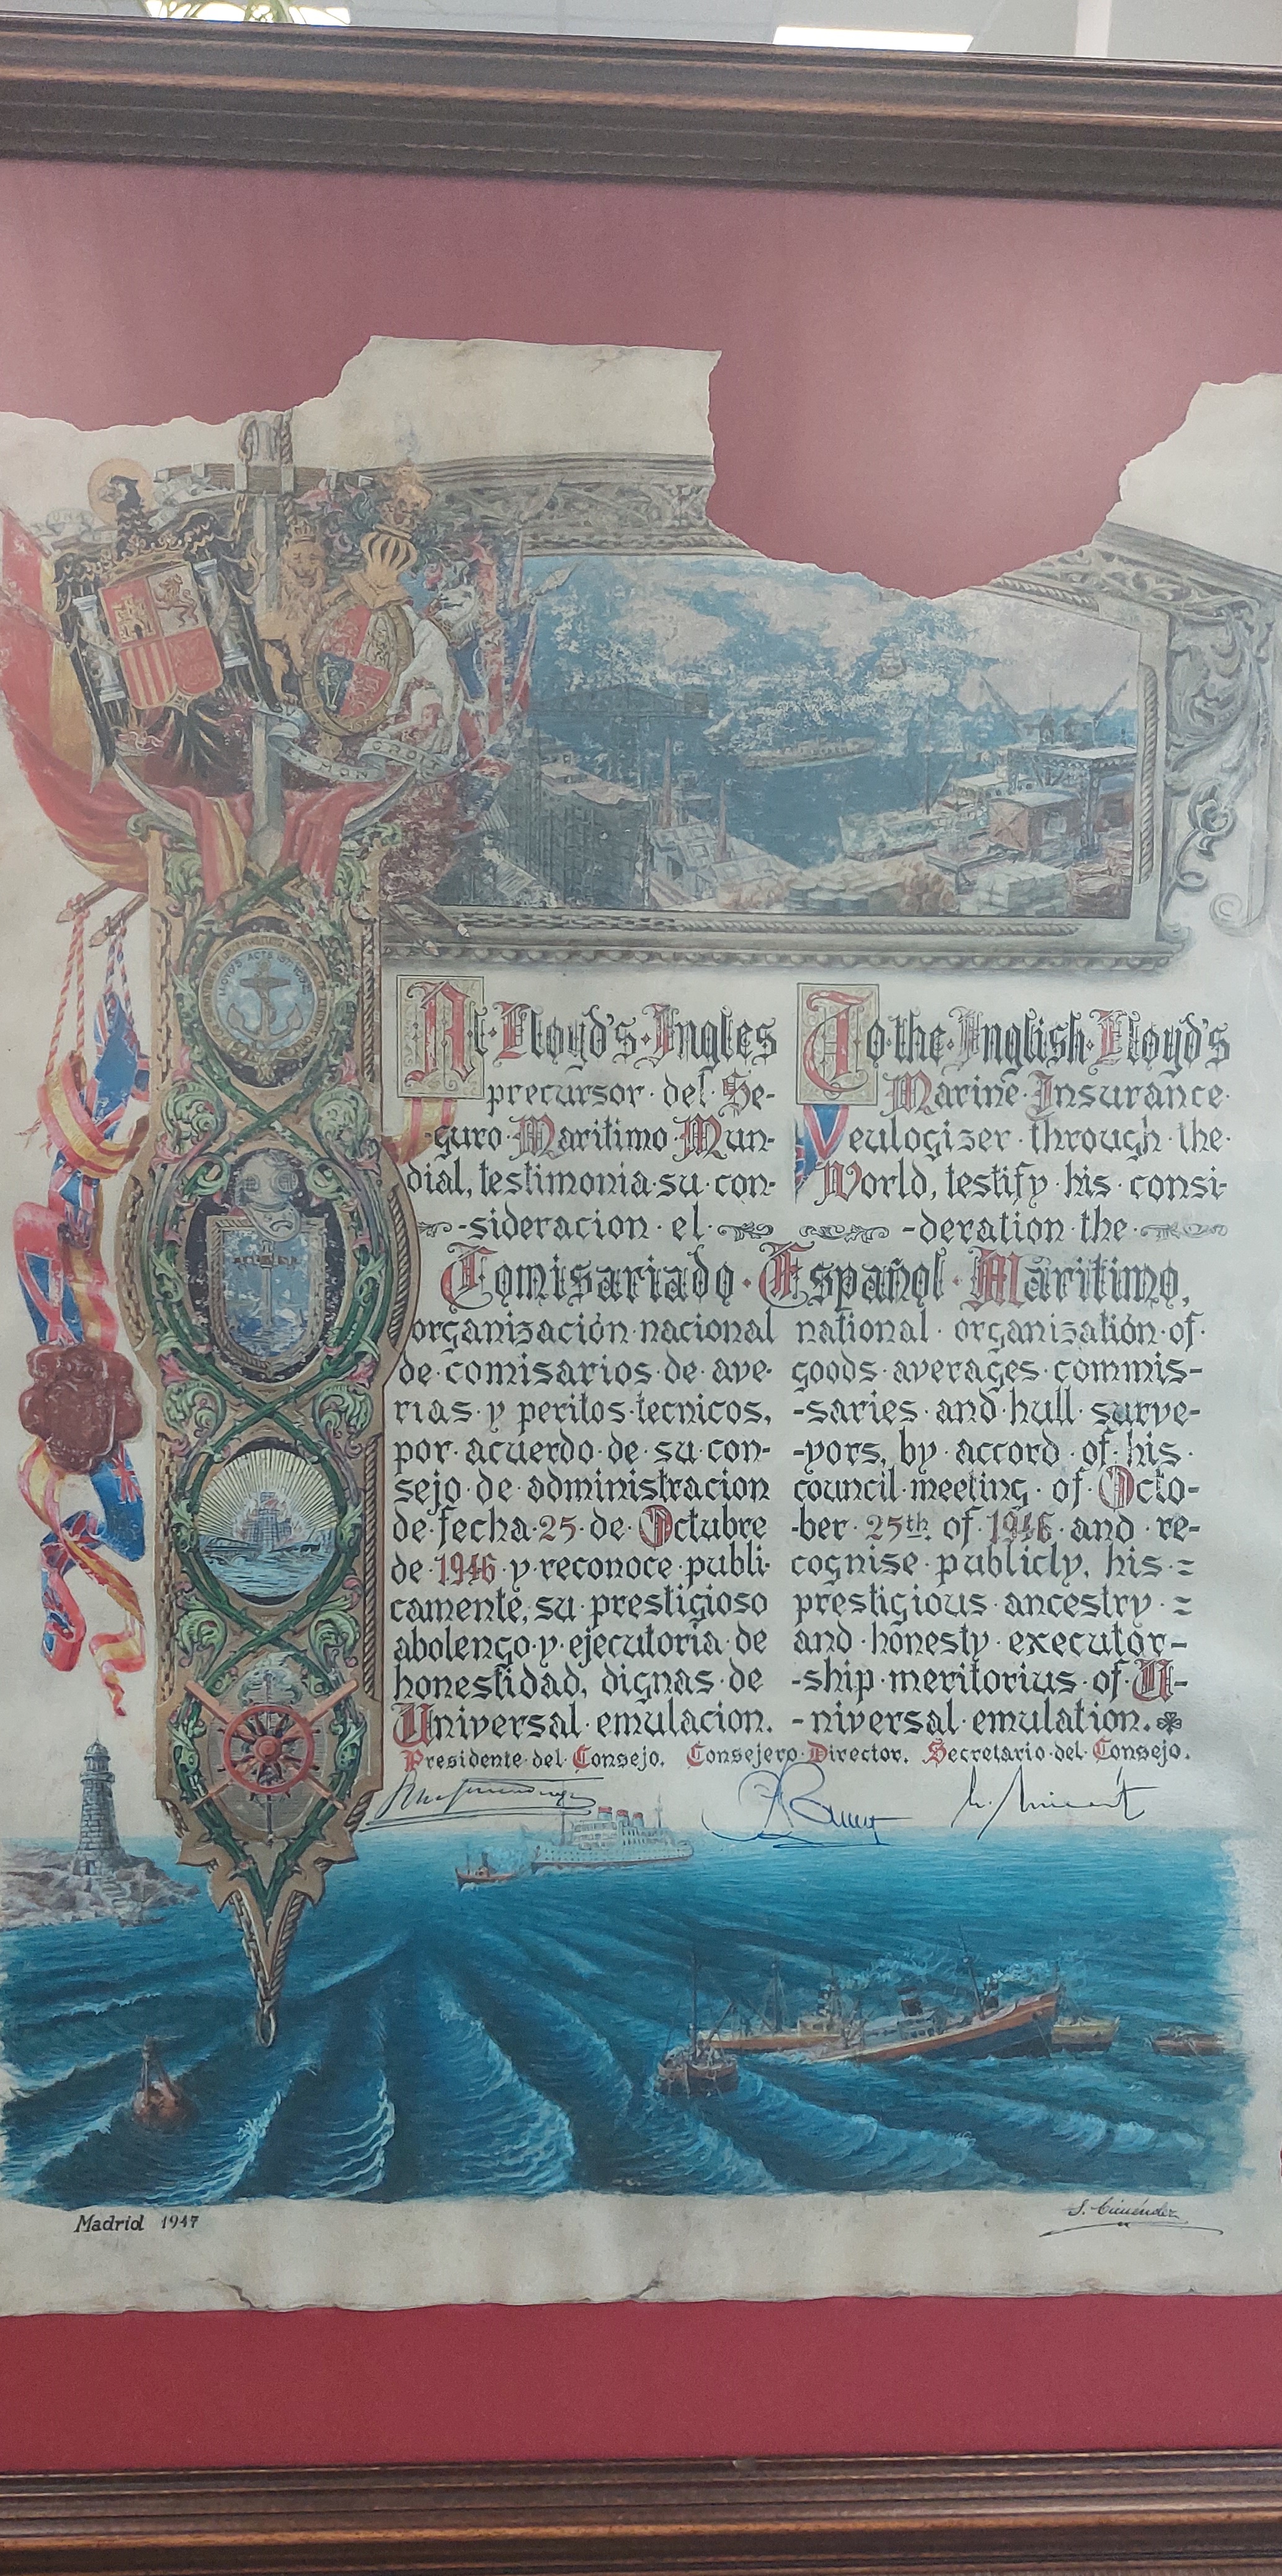 LLOYD'S ACTS
Al·Lloyd's·Ingles
precursor·del·Se-
guro·Maritimo·Mun-
dial, testimonia·su·con-
-sideracion·el·
To·the·Inglish·Lloyd's
Marine·Insurance·
Veulogizer·through·the·
World, testify·his·consi-
-deration·the·
Comisariado·Español·Maritimo,
organización·nacional
de·comisarios·de·ave-
rias·y·peritos·tecnicos,
por·acuerdo·de·su·con-
sejo·de·administracion
de·fecha·25·de·Octubre
de·1946·y·reconoce·publi-
camente, su·prestigioso
abolengo·y·ejecutoria·de
honestidad, dignas·de
Universal·emulacion.
national·organisatión·of·
goods·averages·commis-
-saries·and·hull·surve-
-yors, by·accord·of·his·
council·meeting·of·Octo-
-ber·25th·of·1946·and·re-
cognise·publicly, his·=
prestigious·ancestry·=
and·honesty·executor-
-ship·meritorius·of·U-
-niversal·emulation.
Presidente·del·Consejo. Consejero·Director. Secretario·del·Consejo.
Madrid 1947